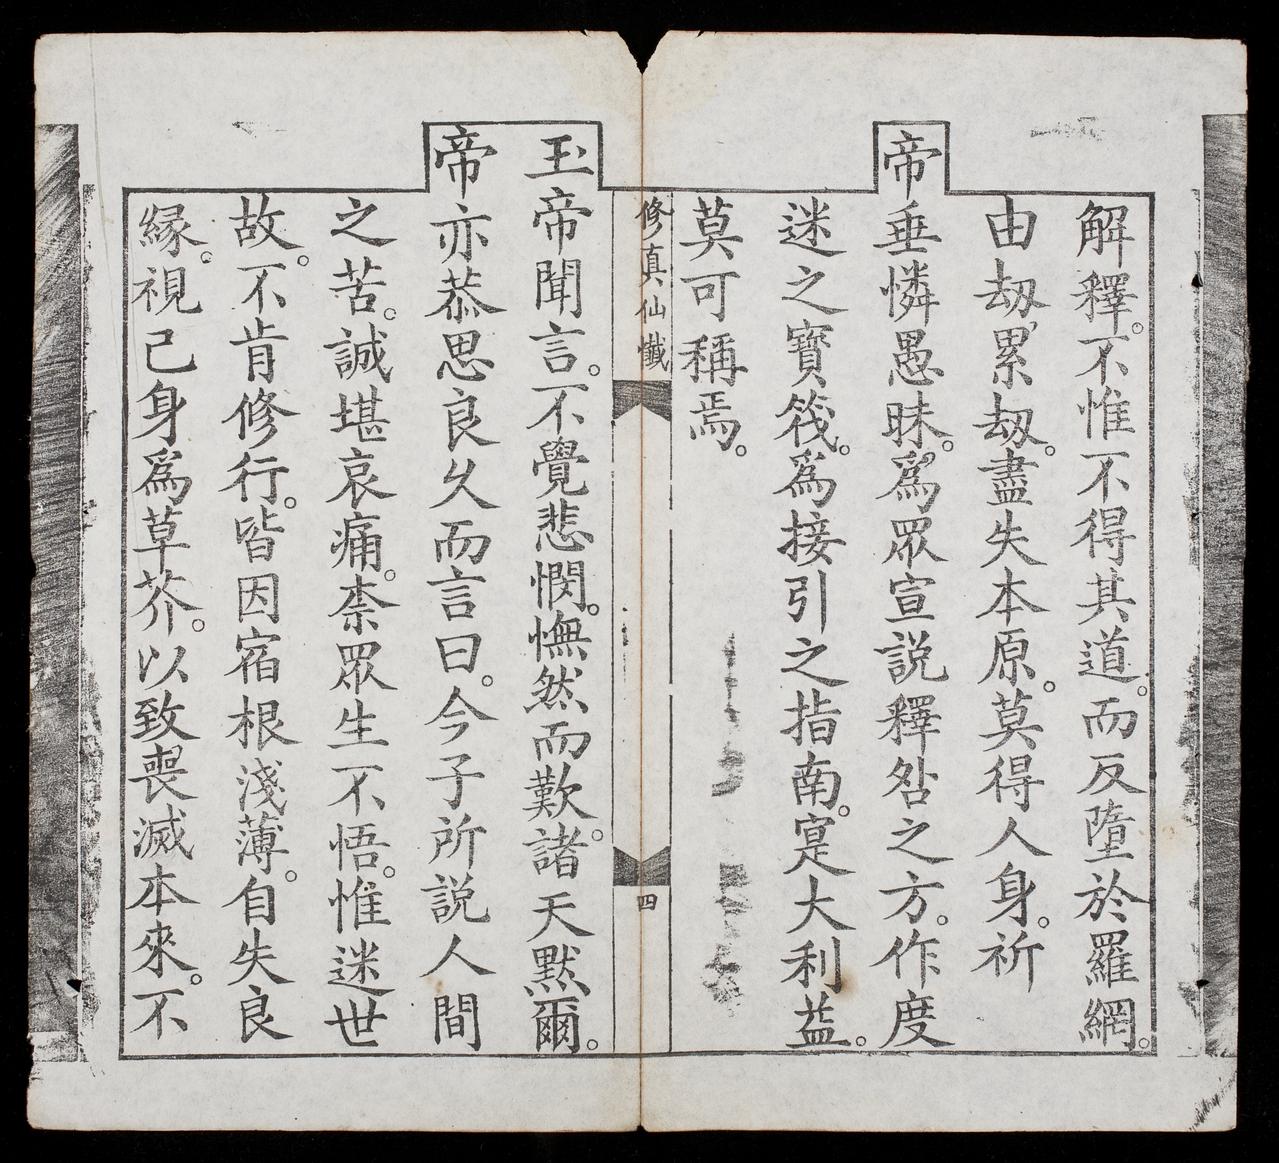 解釋。不惟不得其道。而反墮於羅網。
由刼累刼。盡失本原。莫得人身。祈
帝垂憐愚昧。爲眾宣説釋咎之方。作度
迷之寶筏。爲接引之指南。寔大利益。
莫可稱焉。
修真仙懺
四
玉帝聞言。不覺悲憫。憮然而歎。諸天默爾。
帝亦恭思良久而言曰。今子所説人間
之苦。誠堪哀痛。柰眾生不悟。惟迷世
故。不肯修行。皆因宿根淺薄。自失良
緣。視己身爲草芥。以致喪滅本來。不